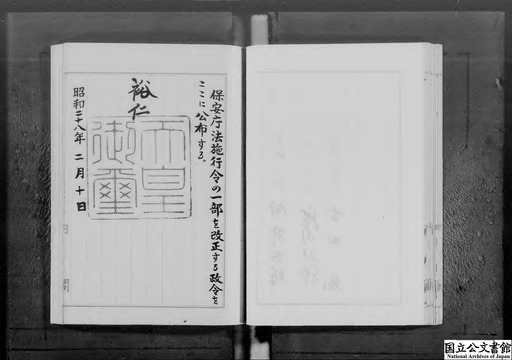 保安庁法施行令の一部を改正する政令を
ここに公布する。
裕仁
天皇
御璽
昭和二十八年二月十日
国立公文書館
National Archives of Japan